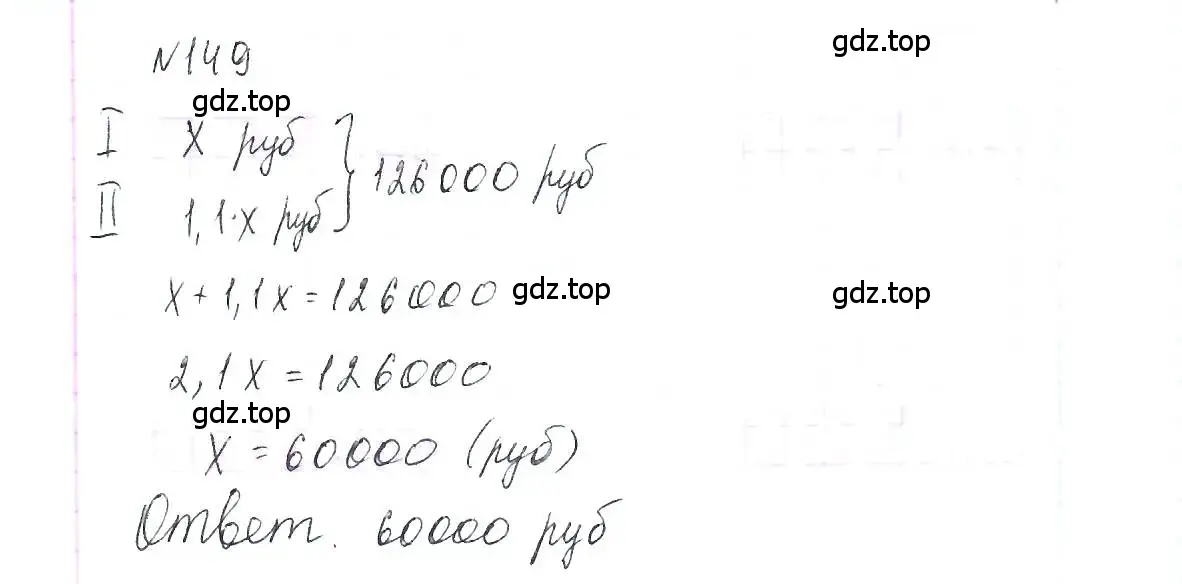 gdz.top
N149
gdz.top
I x руб
126000 руб
II 1,1·x руб
x + 1,1x = 126000 gdz.top gdz.top
2,1x = 126000
gdz.top
x = 60000 (руб)
Ответ. 60000 руб